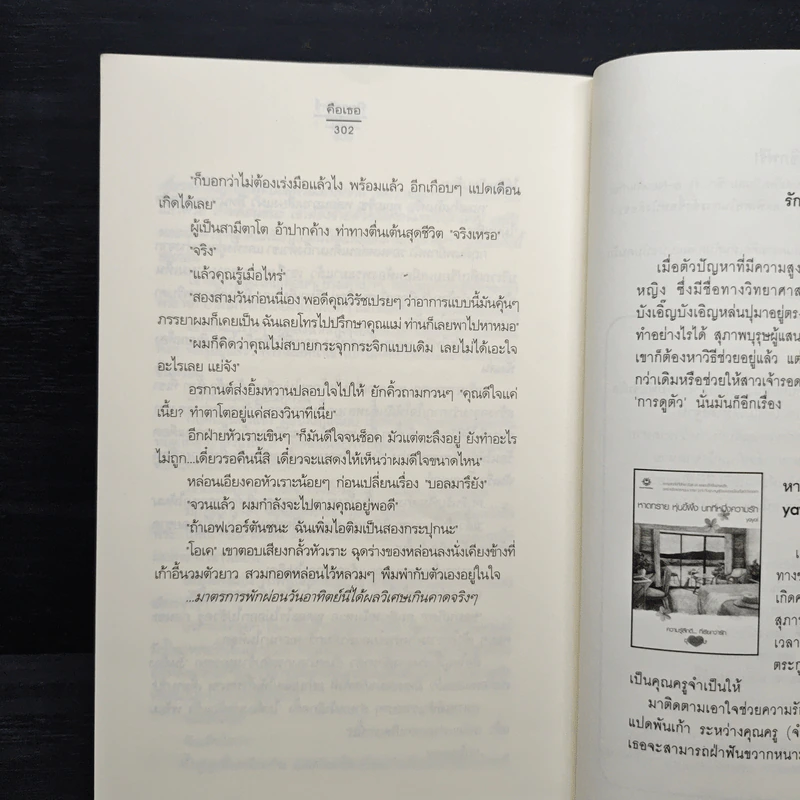 คือเธอ
302
"ก็บอกว่าไม่ต้องเร่งมือแล้วไง พร้อมแล้ว อีกเกือบๆ แปดเดือน
เกิดได้เลย"
ผู้เป็นสามีตาโต อ้าปากค้าง ท่าทางตื่นเต้นสุดชีวิต "จริงเหรอ"
"จริง"
"แล้วคุณรู้เมื่อไหร่"
"สองสามวันก่อนนี่เอง พอดีคุณวิรัชเปรยๆ ว่าอาการแบบนี้มันคุ้นๆ
ภรรยาผมก็เคยเป็น ฉันเลยโทรไปปรึกษาคุณแม่ ท่านก็เลยพาไปหาหมอ"
"ผมก็คิดว่าคุณไม่สบายกระจุกกระจิกแบบเดิม เลยไม่ได้เอะใจ
อะไรเลย แย่จัง"
อรกานต์ส่งยิ้มหวานปลอบใจไปให้ ยักคิ้วถามกวนๆ "คุณดีใจแค่
เนี้ย? ทำตาโตอยู่แค่สองวินาทีเนี่ย"
อีกฝ่ายหัวเราะเขินๆ "ก็มันดีใจจนช็อค มัวแต่ตะลึงอยู่ ยังทำอะไร
ไม่ถูก...เดี๋ยวรอคืนนี้สิ เดี๋ยวจะแสดงให้เห็นว่าผมดีใจขนาดไหน"
หล่อนเอียงคอหัวเราะน้อยๆ ก่อนเปลี่ยนเรื่อง "บอลมารึยัง"
"จวนแล้ว ผมกำลังจะไปตามคุณอยู่พอดี"
"ถ้าเอฟเวอร์ตันชนะ ฉันเพิ่มไอติมเป็นสองกระปุกนะ"
"โอเค" เขาตอบเสียงกลั้วหัวเราะ ฉุดร่างของหล่อนลงนั่งเคียงข้างที่
เก้าอี้นวมตัวยาว สวมกอดหล่อนไว้หลวมๆ พึมพำกับตัวเองอยู่ในใจ
...มาตรการพักผ่อนวันอาทิตย์นี่ได้ผลวิเศษเกินคาดจริงๆ
รัก
เมื่อตัวปัญหาที่มีความสูง
หญิง ซึ่งมีชื่อทางวิทยาศาส
บังเอิ๊ญบังเอิญหล่นปุมาอยู่ตรง
ทำอย่างไรได้ สุภาพบุรุษผู้แสน
เขาก็ต้องหาวิธีช่วยอยู่แล้ว แต่
กว่าเดิมหรือช่วยให้สาวเจ้ารอด
'การดูตัว' นั่นมันก็อีกเรื่อง
หาดทราย หุ่นขี้ผึ้ง นาทีหนึ่งความรัก
หา
ya
ทาง
เกิด
สุภา
เวลา
ตระกู
เป็นคุณครูจำเป็นให้
มาติดตามเอาใจช่วยความรั
แปดพันเก้า ระหว่างคุณครู (จำ
เธอจะสามารถฝ่าฟันขวากหนาม